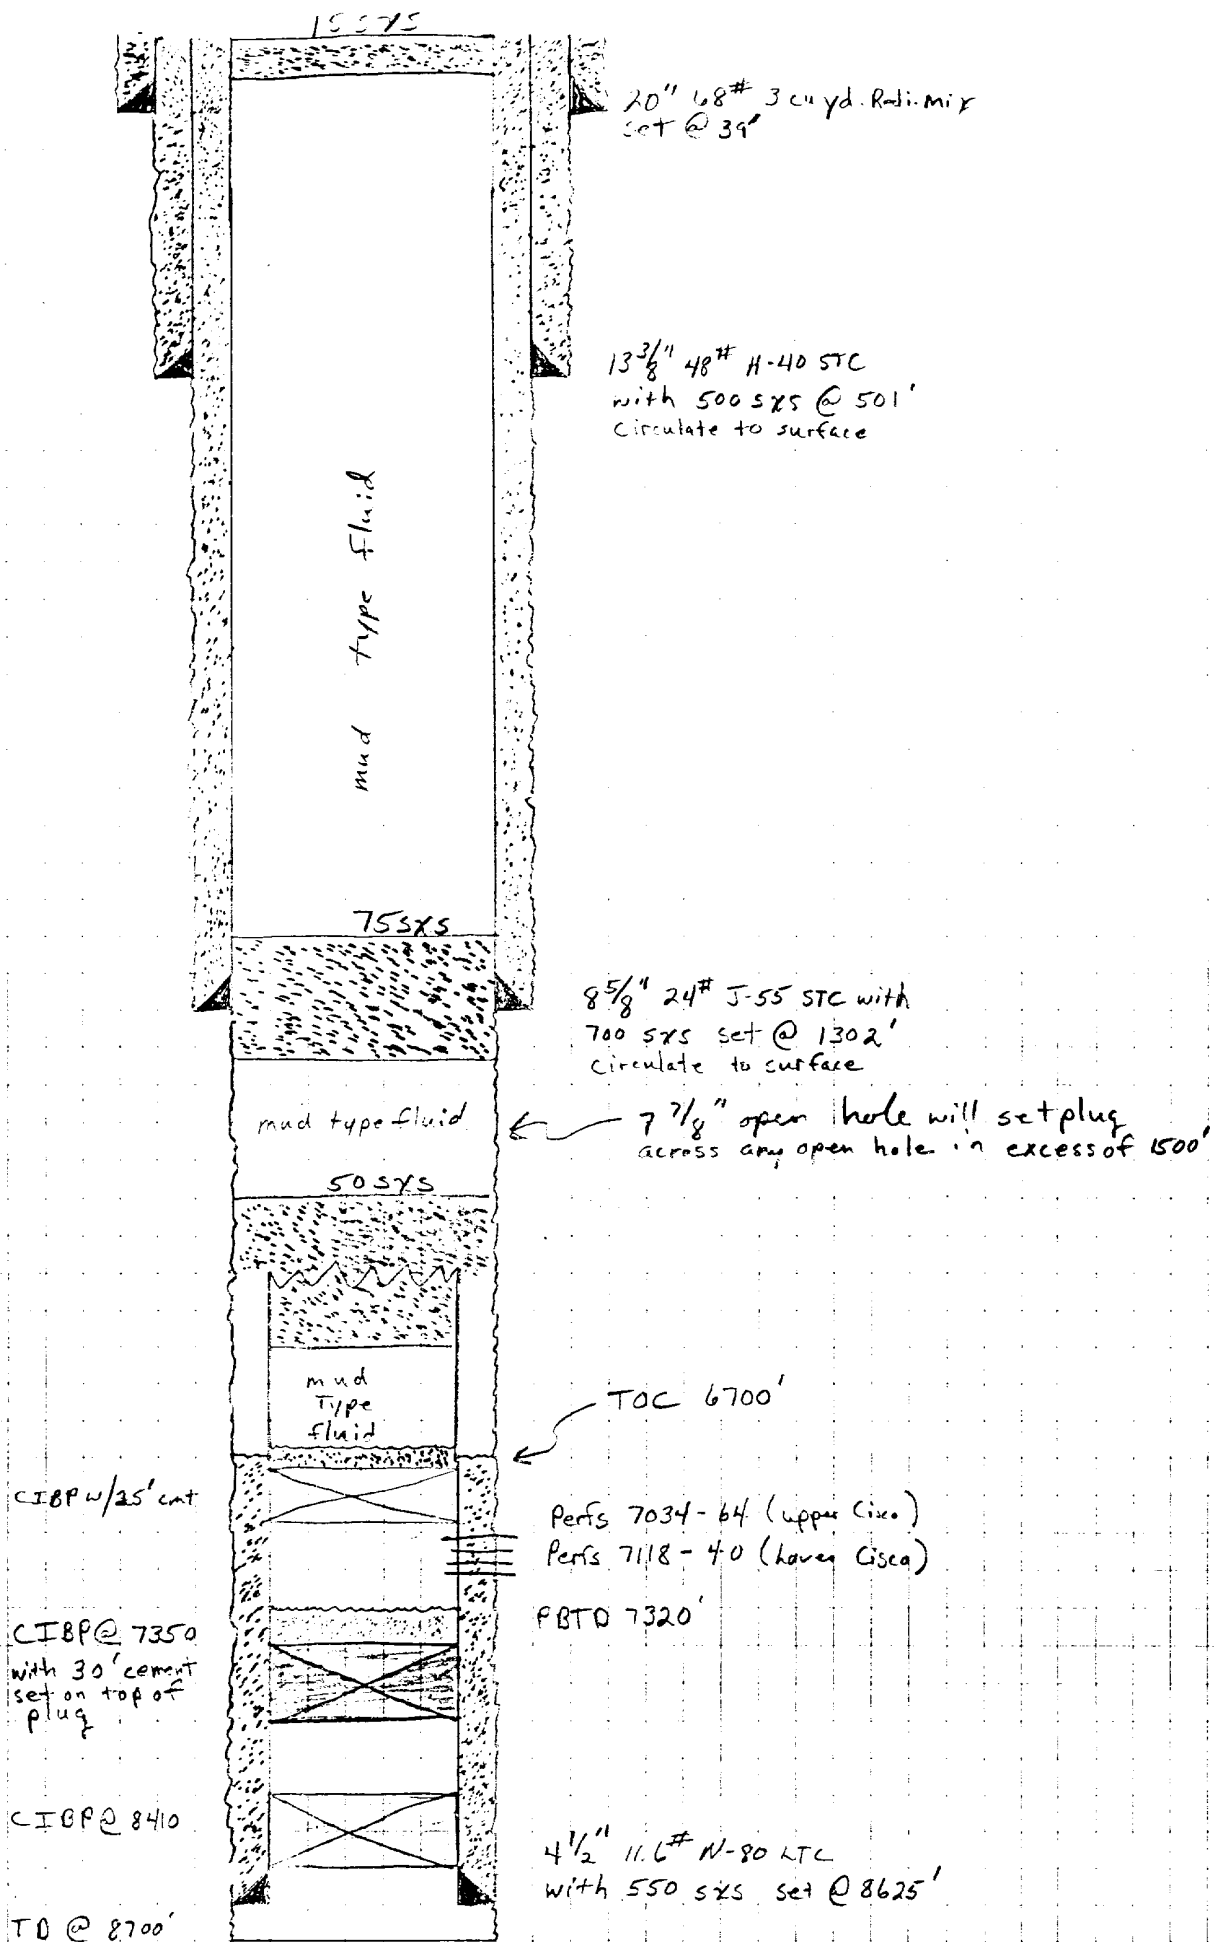 15 sxs
20" 68# 3 cu yd. Redi-Mix
set @ 39'
13 3/8" 48# H-40 STC
with 500 sxs @ 501'
Circulate to surface
mud type fluid
75 sxs
8 5/8" 24# J-55 STC with
700 sxs set @ 1302'
Circulate to surface
mud type fluid
7 7/8" open hole will set plug
across any open hole in excess of 1500'
50 sxs
mud
Type
fluid
TOC 6700'
CIBP w/35' cmt
Perfs 7034-64 (upper Cisco)
Perfs 7118-40 (Lower Cisco)
PBTD 7320'
CIBP @ 7350
with 30' cement
set on top of
plug
CIBP @ 8410
4 1/2" 11.6# N-80 LTC
with 550 sxs set @ 8625'
TD @ 8700'